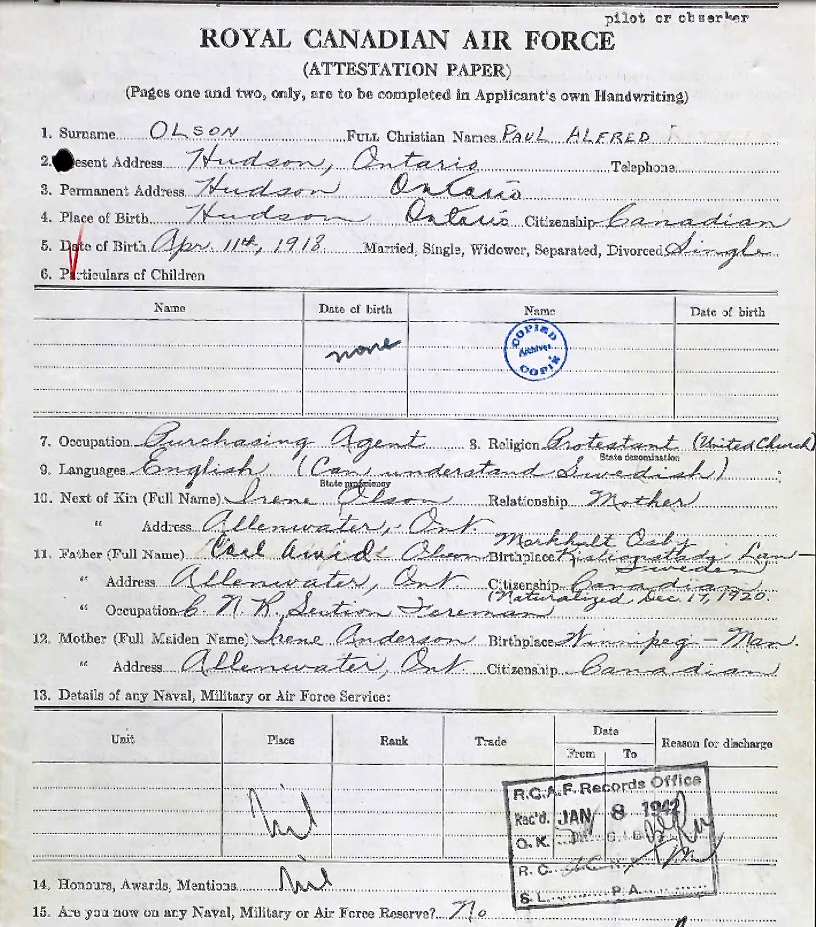 pilot or observer
ROYAL CANADIAN AIR FORCE
(ATTESTATION PAPER)
(Pages one and two, only, are to be completed in Applicant's own Handwriting)
1. Surname OLSON FULL Christian Names PAUL ALFRED
2. esent Address Hudson, Ontario Telephone
3. Permanent Address Hudson Ontario
4. Place of Birth Hudson Ontario Citizenship Canadian
5. Date of Birth Apr. 11th, 1918 Married, Single, Widower, Separated, Divorced Single
6. Particulars of Children
Name Date of birth Name Date of birth
none
COPIED
Archives
COPIE
7. Occupation Purchasing Agent 8. Religion Protestant (United Church)
State denomination
9. Languages English (Can understand Swedish)
State proficiency
10. Next of Kin (Full Name) Irene Olson Relationship Mother
" Address Allenwater, Ont
Markhult Osby
11. Father (Full Name) Carl Olson Birthplace Kristianstads Lan
Sweden
" Address Allenwater, Ont Citizenship Canadian
(Naturalized Dec. 17, 1920.
" Occupation C. N. R. Section Foreman
12. Mother (Full Maiden Name) Irene Anderson Birthplace Winnipeg - Man.
" Address Allenwater, Ont Citizenship Canadian
13. Details of any Naval, Military or Air Force Service:
Unit Place Rank Trade Date Reason for discharge
From To
Nil
R.C.A.F. Records Office
Rec'd. JAN 8 1942
O. K.
R. C.
S. L. P. A.
14. Honours, Awards, Mentions Nil
15. Are you now on any Naval, Military or Air Force Reserve? No